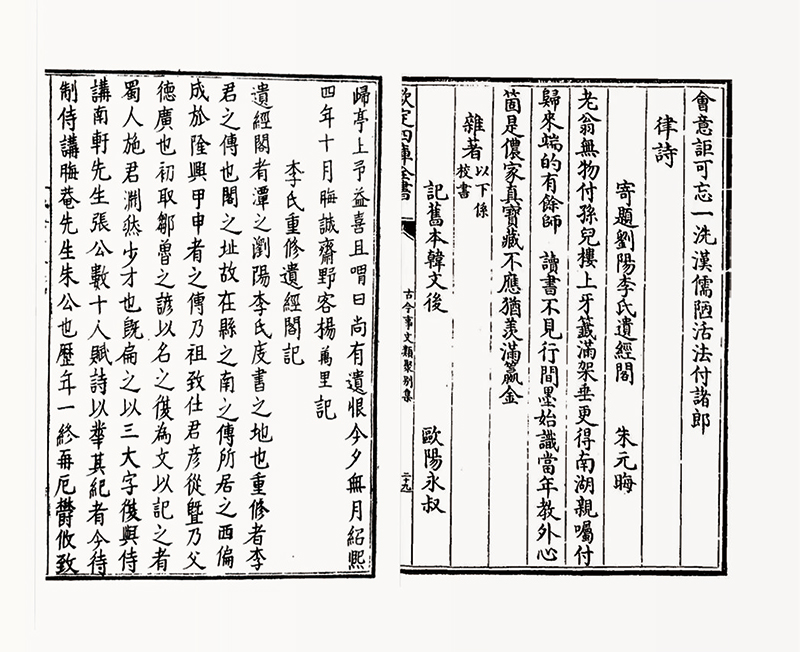 會意詎可忘一洗漢儒陋活法付諸郎
律詩
寄題劉陽李氏遺經閣 朱元晦
老翁無物付孫兒樓上牙籤滿架垂更得南湖親囑付
歸來端的有餘師 讀書不見行間墨始識當年教外心
箇是儂家真寶藏不應猶羨滿籯金
雜著以下係校書
記舊本韓文後 歐陽永叔
欽定四庫全書
古今事文類聚别集
二十九
歸亭上予益喜且喟曰尚有遺恨今夕無月紹熙
四年十月晦誠齋野客楊萬里記
李氏重修遺經閣記
遺經閣者潭之瀏陽李氏庋書之地也重修者李
君之傳也閣之址故在縣之南之傳所居之西偏
成於隆興甲申者之傳乃祖致仕君彦從暨乃父
德廣也初取鄒魯之諺以名之後為文以記之者
蜀人施君淵然少才也既扁之以三大字復與侍
講南軒先生張公數十人賦詩以華其紀者今待
制侍講晦菴先生朱公也歷年一終再厄鬱攸致